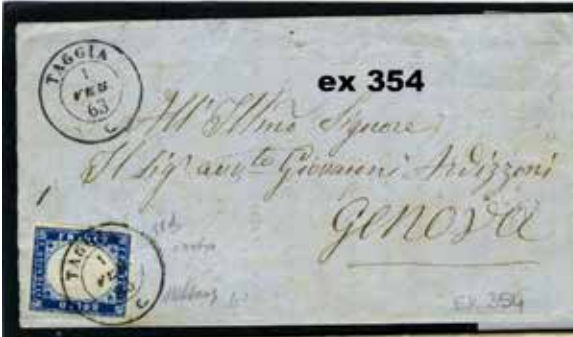 TAGGIA
1
FEB
63
C
ex 354
All'Ill.mo Signore
Il Sig.r avv.to Giovanni Ardizzoni
Genova
TAGGIA
1
C
ex 354